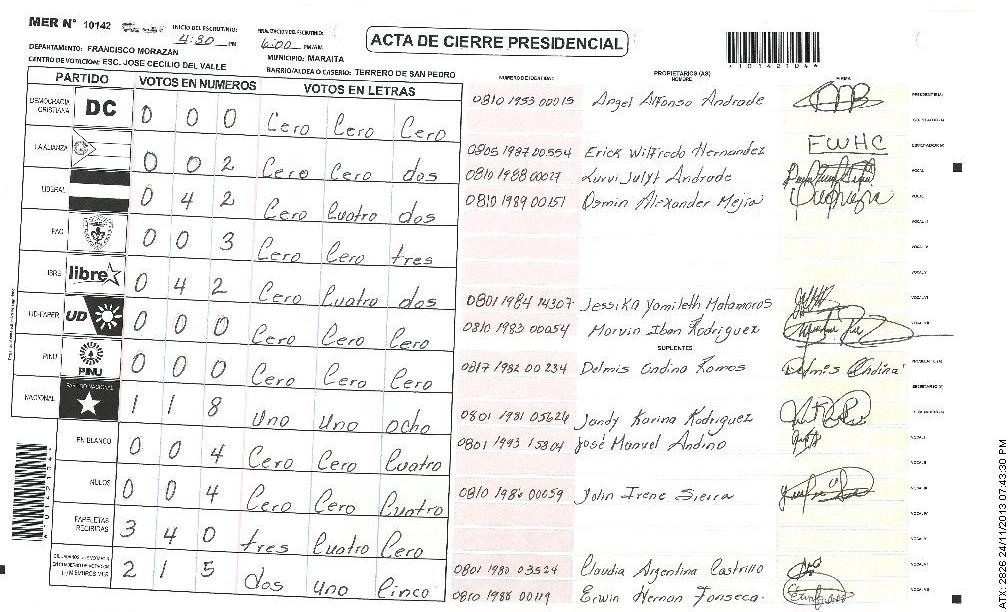 MER N° 10142
INICIO DEL ESCRUTINIO:
4:30 PM
FINALIZACION DEL ESCRUTINIO:
6:00 PM/AM
ACTA DE CIERRE PRESIDENCIAL
DEPARTAMENTO: FRANCISCO MORAZAN
MUNICIPIO: MARAITA
CENTRO DE VOTACION: ESC. JOSE CECILIO DEL VALLE
BARRIO/ALDEA O CASERIO: TERRERO DE SAN PEDRO
PARTIDO VOTOS EN NUMEROS VOTOS EN LETRAS
DEMOCRACIA CRISTIANA DC 0 0 0 Cero Cero Cero
LA ALIANZA 0 0 2 Cero Cero dos
LIBERAL 0 4 2 Cero Cuatro dos
PAC 0 0 3 Cero Cero tres
LIBRE libre 0 4 2 Cero Cuatro dos
UD-FAPER UD 0 0 0 Cero Cero Cero
PINU PINU 0 0 0 Cero Cero Cero
NACIONAL PARTIDO NACIONAL 1 1 8 uno uno ocho
EN BLANCO 0 0 4 Cero Cero Cuatro
NULOS 0 0 4 Cero Cero Cuatro
PAPELETAS RECIBIDAS 3 4 0 tres Cuatro Cero
2 1 5 dos uno Cinco
NUMERO DE IDENTIDAD PROPIETARIOS (AS) NOMBRE FIRMA
0810 1953 00015 Angel Alfonso Andrade PRESIDENTE(A)
SECRETARIO(A)
0805 1987 00554 Erick Wilfredo Hernandez FWHC ESCRUTADOR(A)
0810 1988 00027 Andrade VOCAL I
0810 1989 00151 Osmin Alexander Mejia VOCAL II
VOCAL III
VOCAL IV
VOCAL V
0801 1984 14307 Jessika Yamileth Matamoros VOCAL VI
0810 1983 00054 Marvin Iban Rodriguez VOCAL VII
SUPLENTES
0817 1982 00234 Delmis Ondina Ramos Delmis Ondina PRESIDENTE(A)
SECRETARIO(A)
0801 1981 05624 Jandy Karina Rodriguez ESCRUTADOR(A)
0801 1993 15804 José Manuel Andino VOCAL I
VOCAL II
0810 1986 00059 Yolin Irene Sierra VOCAL III
VOCAL IV
VOCAL V
0801 1980 03524 Claudia Argentina Castrillo VOCAL VI
0810 1988 00119 Erwin Hernan Fonseca. VOCAL VII
*10142104*
ATX 2826 24/11/2013 07:43:30 PM